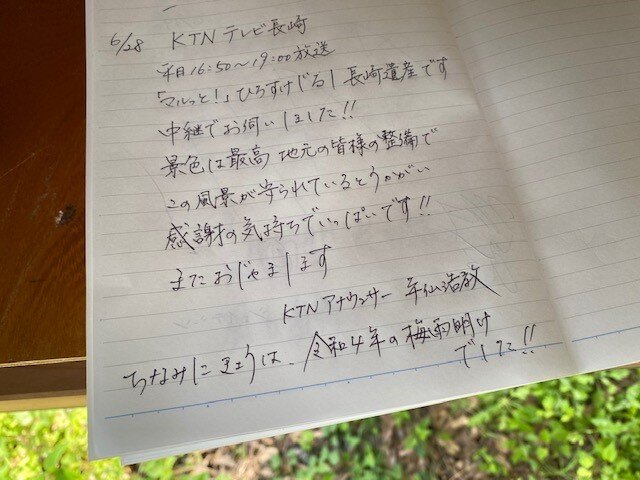 6/28 KTNテレビ長崎
本日16:50〜19:00放送
「マルっと!」ひろすけじるし長崎遺産です
中継でお伺いしました!!
景色は最高 地元の皆様の整備で
この風景が守られているとうかがい
感謝の気持ちでいっぱいです!!
またおじゃまします
KTNアナウンサー
ちなみにきょうは、令和4年の梅雨明け
でした!!